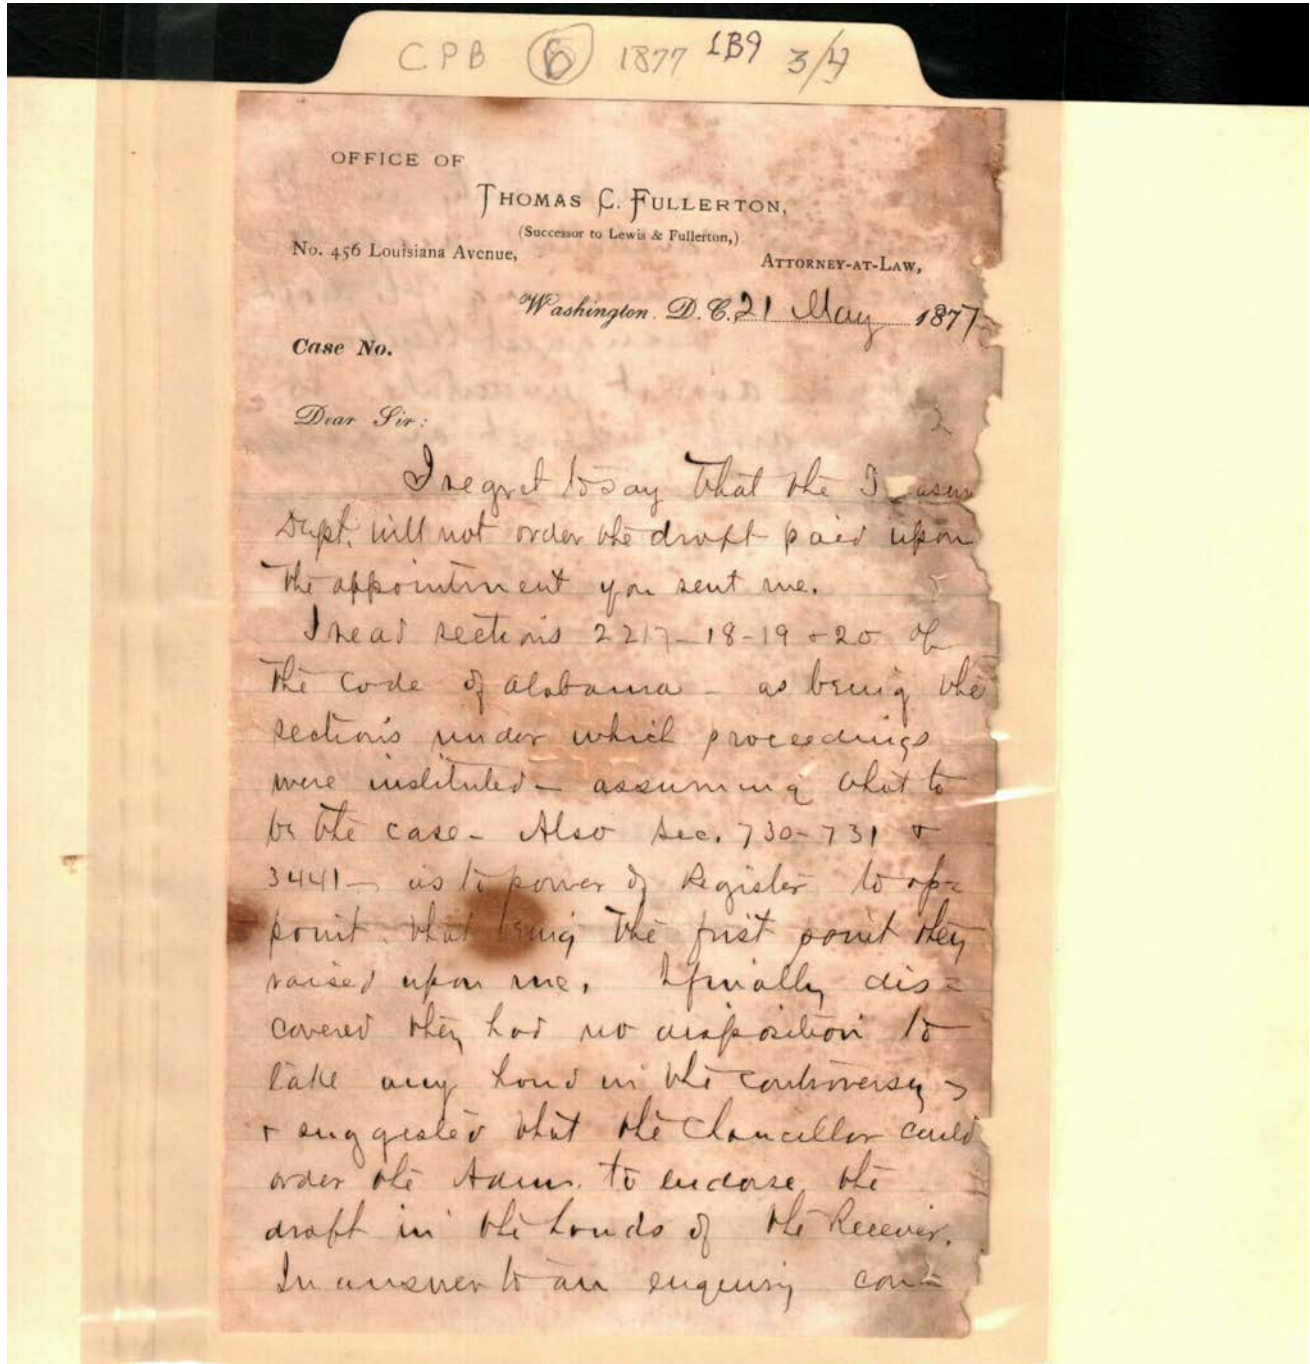 CPB 6 1877 LB9 3/4
OFFICE OF
THOMAS C. FULLERTON,
(Successor to Lewis & Fullerton,)
No. 456 Louisiana Avenue,
ATTORNEY-AT-LAW,
Washington. D. C. 21 May 1877
Case No.
Dear Sir:
I regret to say that the
Dept. will not order the draft paid upon
the appointment you sent me.
I read sections 2217-18-19 + 20 of
the Code of Alabama - as being the
sections under which proceedings
were instituted - assuming that to
be the case - Also sec. 730-731 +
3441 - as to power of Register to ap-
point. that being the first point they
raised upon me. I finally dis=
covered they had no disposition to
take any hand in the controversy -
+ suggested that the Chancellor could
order the Admr. to endorse the
draft in the hands of the Receiver.
In answer to an enquiry con=